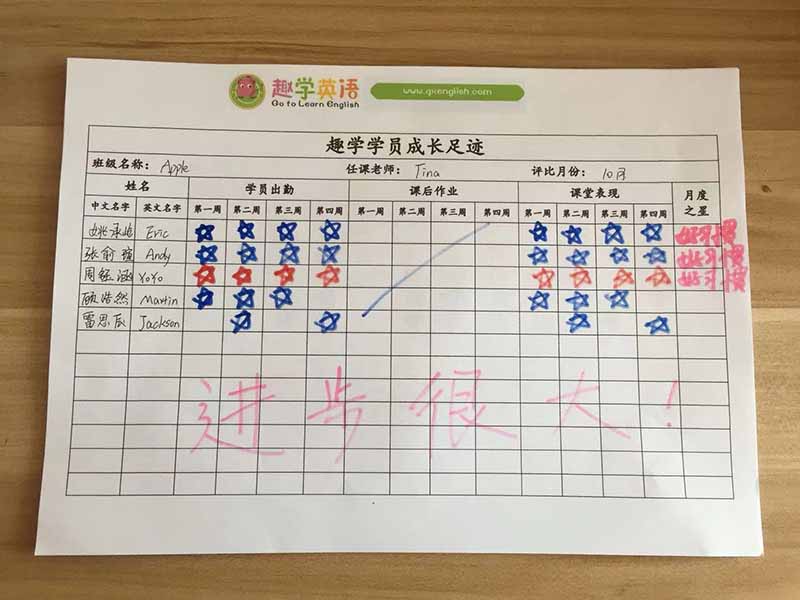 趣学英语
Go to Learn English
www.qxenglish.com
趣学学员成长足迹
班级名称: Apple 任课老师: Tina 评比月份: 10月
姓名 学员出勤 课后作业 课堂表现 月度之星
中文名字 英文名字 第一周 第二周 第三周 第四周 第一周 第二周 第三周 第四周 第一周 第二周 第三周 第四周
Eric 好习惯
张俞瑄 Andy 好习惯
周钰涵 YoYo 好习惯
顾浩然 Martin
雷思辰 Jackson
进步很大!